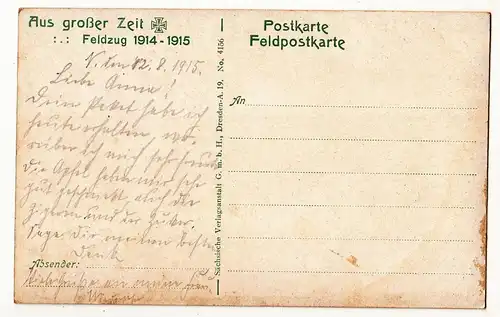 Aus großer Zeit
:.: Feldzug 1914-1915
V. den 12.8.1915.
Liebe Anna!
Dein Paket habe ich
heute erhalten, wo-
rüber ich mich sehr freute
die Äpfel haben mir sehr
gut geschmeckt, auch die
Zigarren und der Zucker.
Sage Dir meinen besten
Dank
Absender:
Viele Grüße an
Sächsische Verlagsanstalt G. m. b. H., Dresden-A. 19. No. 4156
Postkarte
Feldpostkarte
An